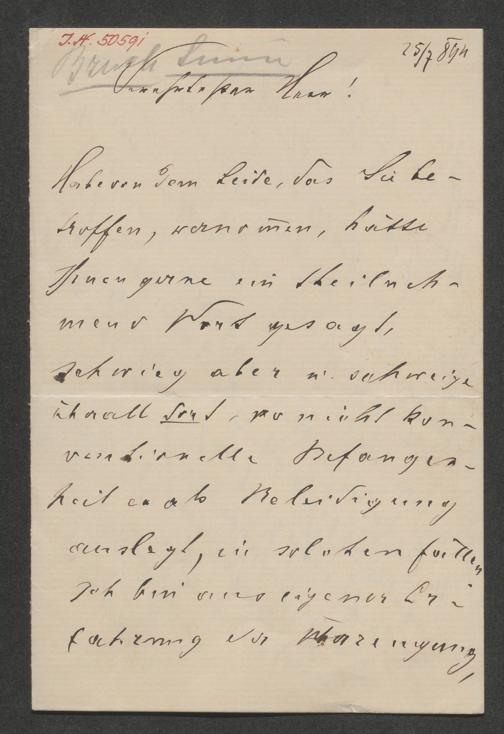 J.N. 50591
25/7 894
Bruch
Verehrtester Herr!
Habe von dem Leide, das Sie be-
troffen, vernom̄en, hätte
Ihnen gerne ein theilneh-
mend Wort gesagt,
schwieg aber u. schweige
überall dort, wo nicht kon-
ventionelle Befangen-
heit es als Beleidigung
auslegt, in solchen Fällen
Ich bin aus eigener Er-
fahrung der Überzeugung,